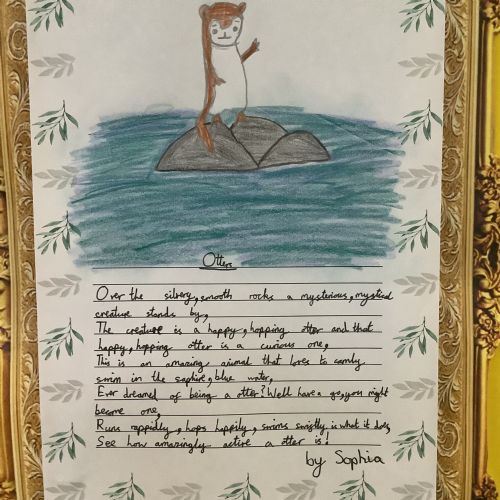 Otters
Over the silvery, smooth rocks a mysterious, mystical
creature stands by,
The creature is a happy, hopping otter and that
happy, hopping otter is a curious one,
This is an amazing animal that loves to camly
swim in the saphire, blue water,
Ever dreamed of being a otter? Well have a go, you might
become one,
Runs rappidly, hops happily, swims swiftly is what it does,
See how amazingly active a otter is!
by Sophia